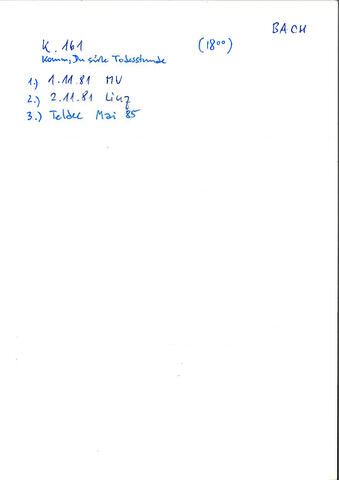 BACH
K. 161 (18⁰⁰)
Komm, Du süße Todesstunde
1.) 1.11.81 MV
2.) 2.11.81 Linz
3.) Teldec Mai 85